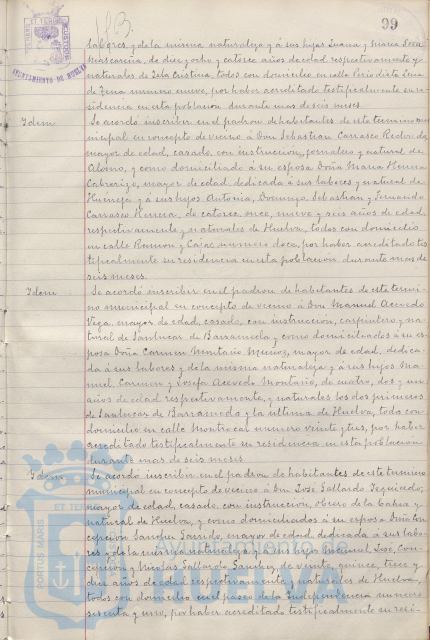 99
labores, y de la misma naturaleza y á sus hijos Juana y María Rosa
de diez y ocho y catorce años de edad respectivamente y
naturales de Isla Cristina, todos con domicilio en calle
número nueve, por haber acreditado testificalmente su re-
sidencia en esta población durante mas de seis meses.
Idem
Se acordó inscribir en el padron de habitantes de este termino mu-
nicipal en concepto de vecino á Don Sebastian Carrasco
mayor de edad, casado, con instrucción, jornalero y natural de
Alosno, y como domiciliado á su esposa Doña Maria Herrera
mayor de edad dedicada á sus labores y natural de
y á sus hijos Antonia, Domingo, Sebastian y Fernando
Carrasco Herrera, de catorce, once, nueve y seis años de edad
respectivamente y naturales de Huelva, todos con domicilio
en calle Ramon y Cajal número doce, por haber acreditado tes-
tificalmente su residencia en esta población durante mas de
seis meses.
Idem
Se acordó inscribir en el padron de habitantes de este termi-
no municipal en concepto de vecino á Don Manuel Acevedo
Vega, mayor de edad, casado, con instrucción, carpintero y na-
tural de Sanlucar de Barrameda y como domiciliados á su es-
posa Doña Carmen Montaño Muñoz, mayor de edad, dedica-
da á sus labores y de la misma naturaleza y á sus hijos Ma-
nuel, Carmen y Josefa Acevedo Montaño, de cuatro, dos y un
años de edad respectivamente, y naturales los dos primeros
de Sanlucar de Barrameda y la última de Huelva, todo con
domicilio en calle Montrocal número veinte y tres, por haber
acreditado testificalmente su residencia en esta población
durante mas de seis meses
Idem
Se acordó inscribir en el padron de habitantes de este termino
municipal en concepto de vecino á Don José Gallardo
mayor de edad, casado, con instrucción, obrero de la bahia y
natural de Huelva, y como domiciliados á su esposa Doña Con-
cepción Sanchez mayor de edad dedicada á sus labo-
res y de la misma naturaleza y á sus hijos Manuel, José, Con-
cepción y Nicolas Gallardo Sanchez, de veinte, quince, trece y
diez años de edad respectivamente y naturales de Huelva,
todos con domicilio en el paseo de la Independencia número
sesenta y uno, por haber acreditado testificalmente su resi-
AYUNTAMIENTO DE HUELVA
PORTUS MARIS
ET TERRE
Ayuntamiento de